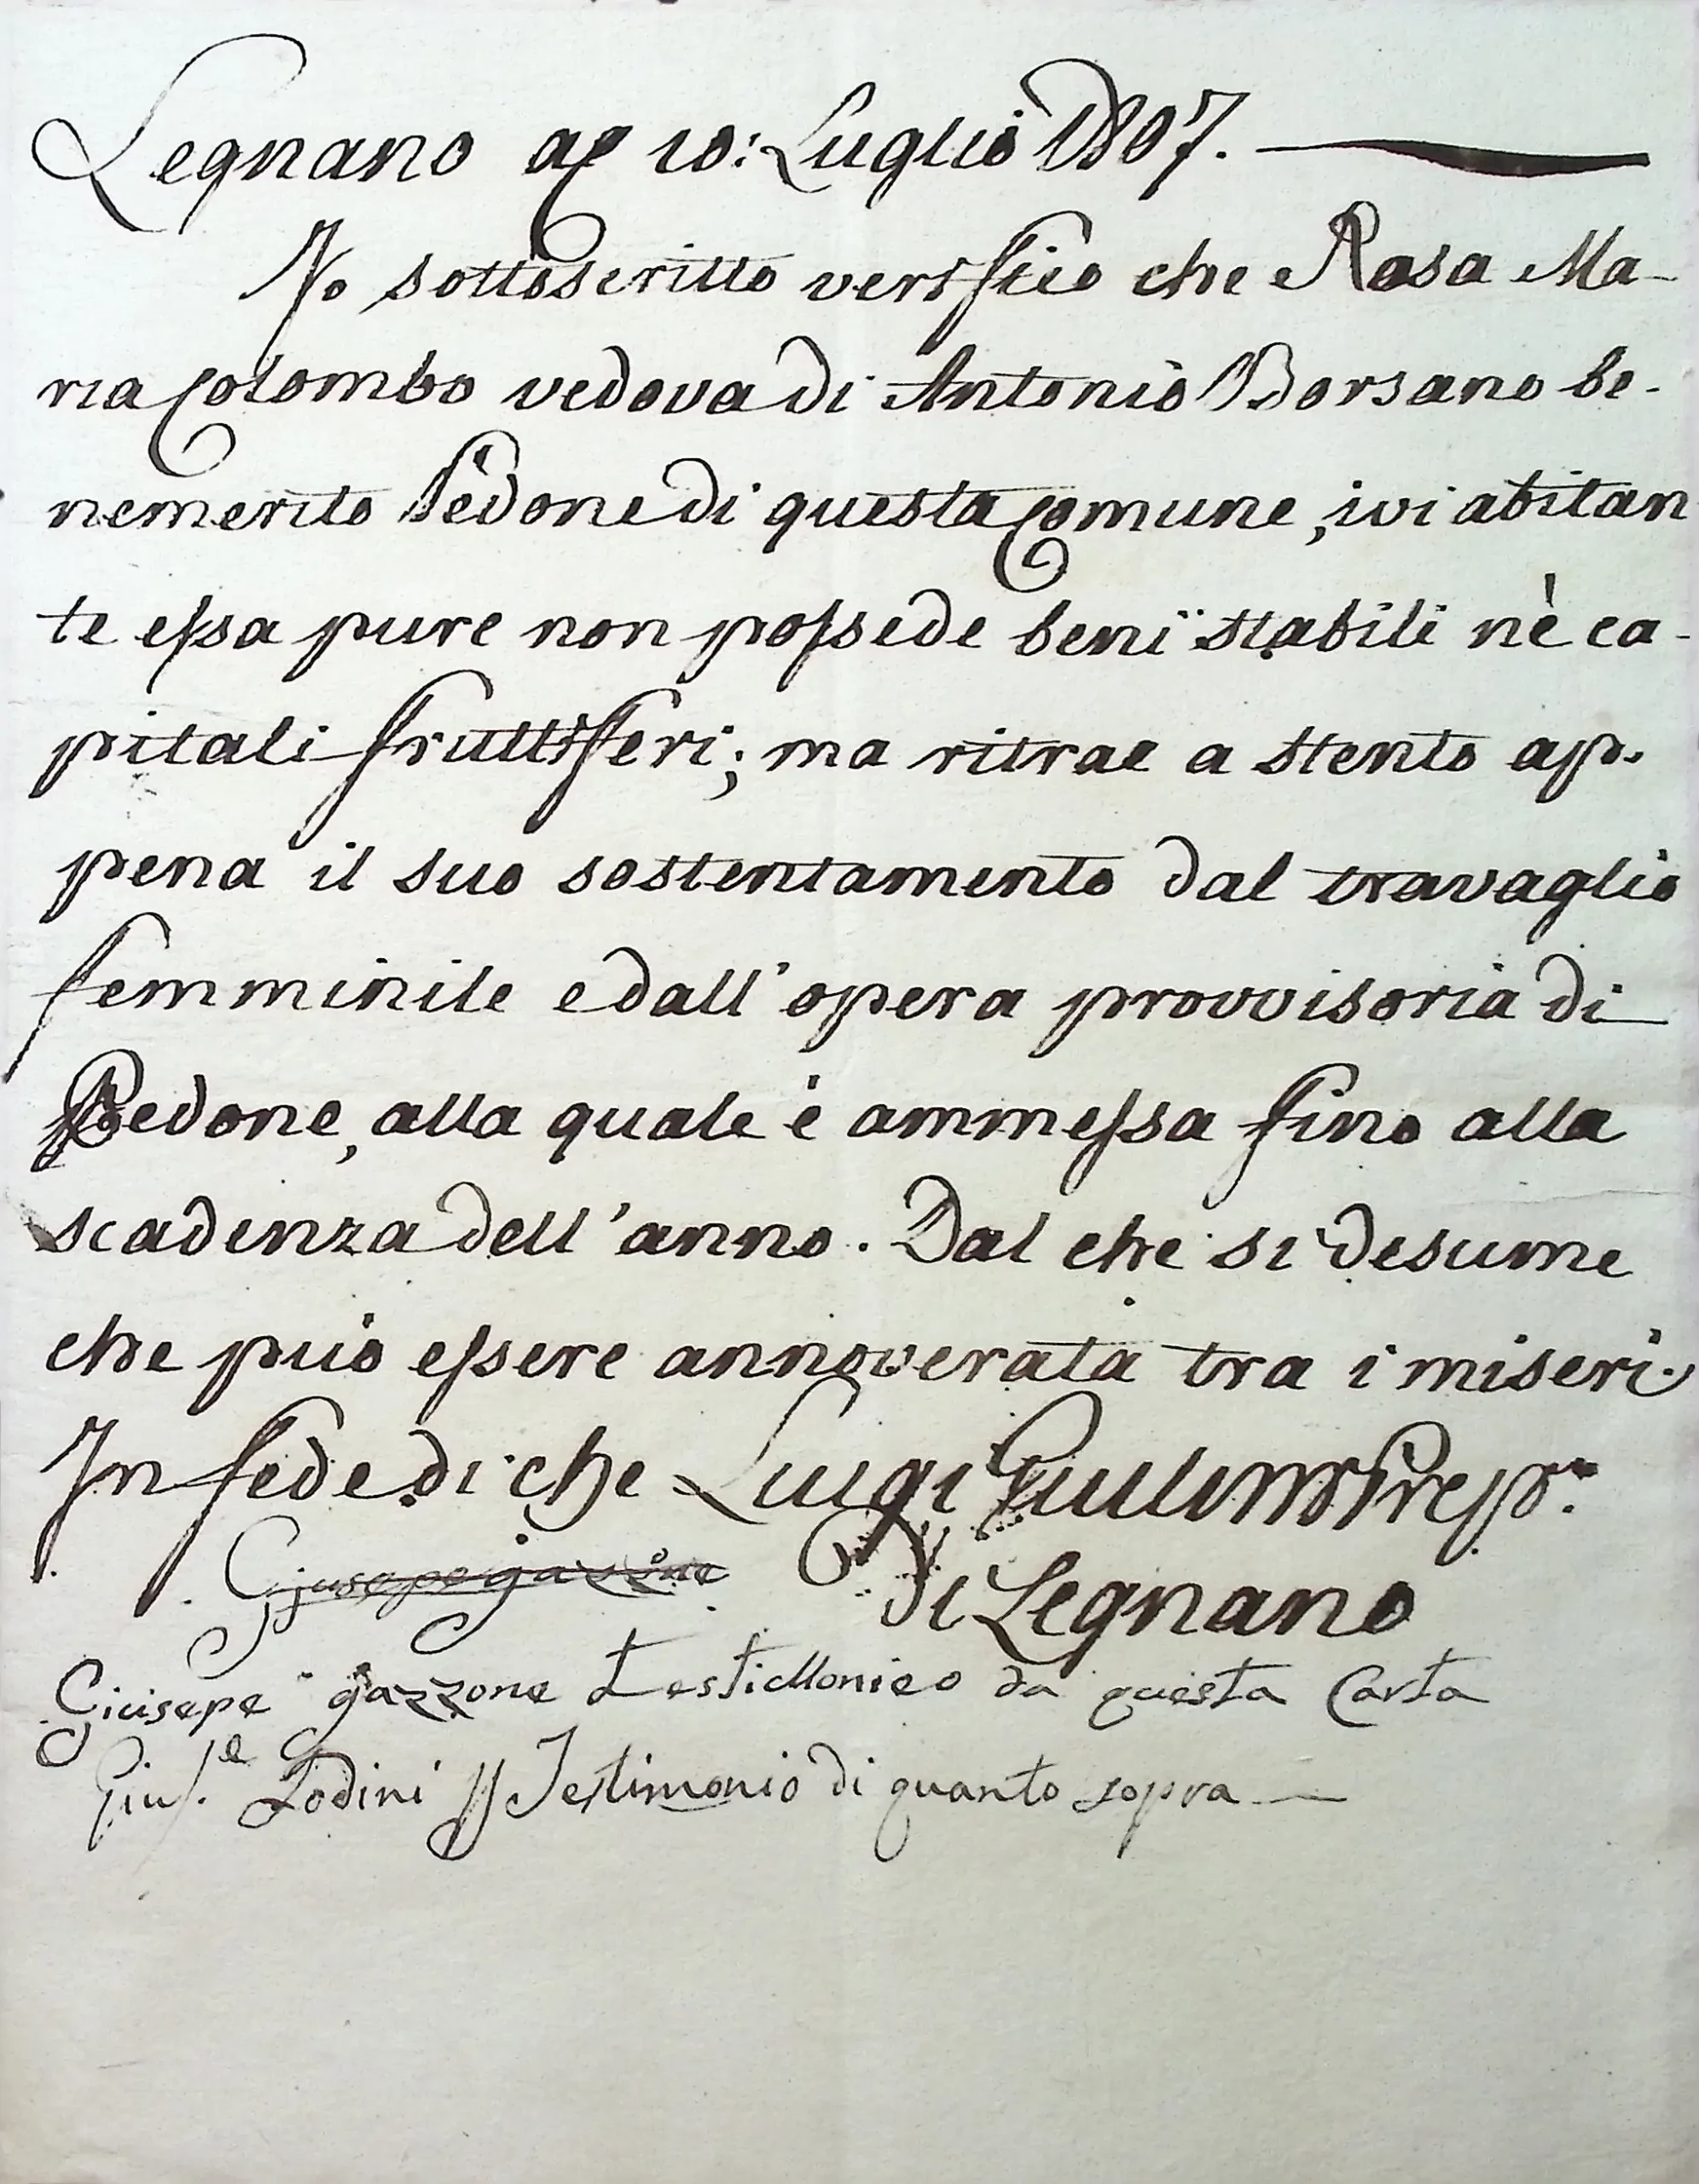 Legnano a 10: Luglio 1807.
Io sottoscritto verifico che Rosa Ma-
ria Colombo vedova di Antonio Borsano be-
nemerito Pedone di questa Comune, ivi abitan
te essa pure non possede beni stabili nè ca-
pitali fruttiferi; ma ritrae a stento ap-
pena il suo sostentamento dal travaglio
femminile e dall'opera provvisoria di
Pedone, alla quale è ammessa fino alla
scadenza dell'anno. Dal che si desume
che può essere annoverata tra i miseri.
In fede di che Luigi
Giusepe gazzone
di Legnano
Giusepe gazzone testiMonico da questa Carta
Gius.e Lodini Testimonio di quanto sopra